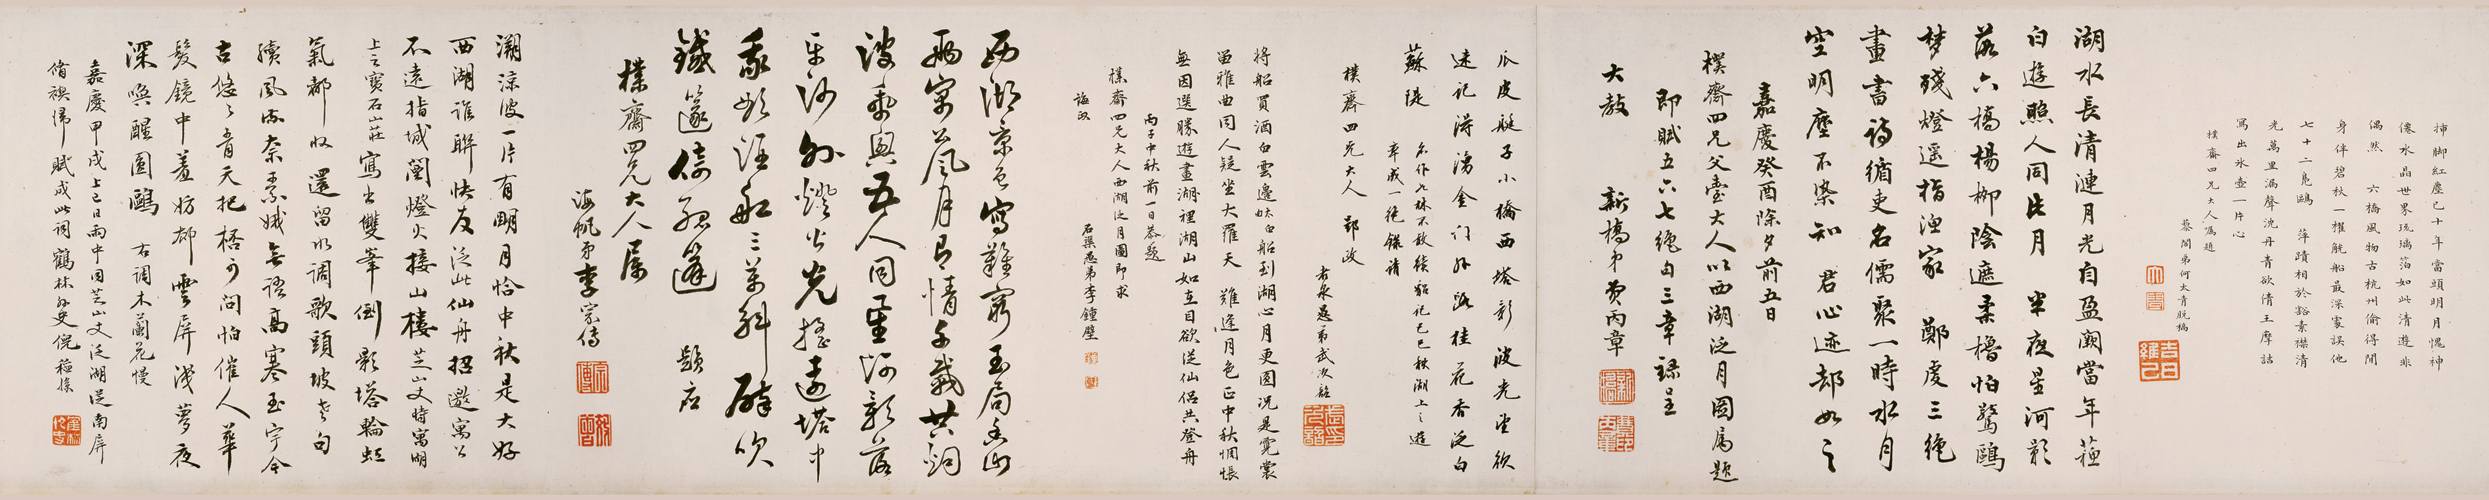 揷脚紅塵已十年當頭明月愧神
僊水晶世界琉璃箔如此清遊非
偶然　六橋風物古杭州偷得閒
身伴碧秋一櫂觥船最深處誤他
七十二鳧鷗　萍蹟相於豁素襟清
光萬里漏聲沈丹青欲倩王摩詰
寫出冰壺一片心
樸齋四兄大人屬題
藜閣弟何太青脫稿
湖水長清漣月光自盈闕當年蘇
白遊照人同此月　半夜星河影
落六橋楊柳陰遮柔櫓怕驚鷗
夢殘燈遥指漁家　鄭虔三絶
畫書詩循吏名儒聚一時水月
空明塵不染知　君心迹却如之
嘉慶癸酉除夕前五日
樸齋四兄父臺大人以西湖泛月圖属題
即賦五六七絶句三章録呈
大教　新橋弟費丙章
瓜皮艇子小橋西塔影波光望欲
迷記得湧金门外路桂花香泛白
蘇隄
余作七林不敢續貂記己巳秋湖上之遊
率成一絶録請
樸齋四兄大人　郢政
春泉愚弟武次韶
將船買酒白雲邊妙句船到湖心月更圓况是霓裳
留雅曲同人疑坐大羅天　難逢月色正中秋惆悵
無因選勝遊畫湖裡湖山如在目欲從仙侣共登舟
丙子中秋前一日恭題
樸齋四兄大人西湖泛月圖即求
誨政
石渠愚弟李鍾璧
西湖京邑寫難窮玉局吾山
兩寓公風月有情千載共烟
波乘興五人同星河影落
平沙外燈火光摇遠塔中
我欲泛舡三萬斛醉吹
鐵篴倚孤篷　题应
樸齋四兄大人属
海帆弟李宗傳
溯涼波一片有明月恰中秋是大好
西湖誰聯快友泛此仙舟招邀寓公
不遠指城闉燈火接山樓芝山丈時寓湖
上之寶石山莊寫出雙峯倒影塔輪虹
氣都收　還留水調歌頭坡老句
續風流奈素娥無語高寒玉宇今
古悠悠青天把栝可問怕催人華
髮鏡中羞妨却雲屏淺夢夜
深喚醒圓鷗　右調木蘭花慢
嘉慶甲戌上巳日雨中同芝山丈泛湖從南屏
脩禊歸賦成此詞鶴林外史倪稻孫